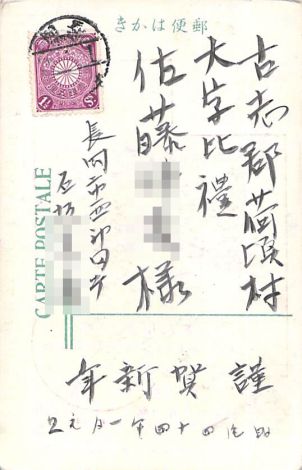 郵便はかき
古志郡荷頃村
大字比禮
佐藤 様
長岡市西神田町
CARTE POSTALE
謹賀新年
明治四十四年一月元旦
1½ Sn.